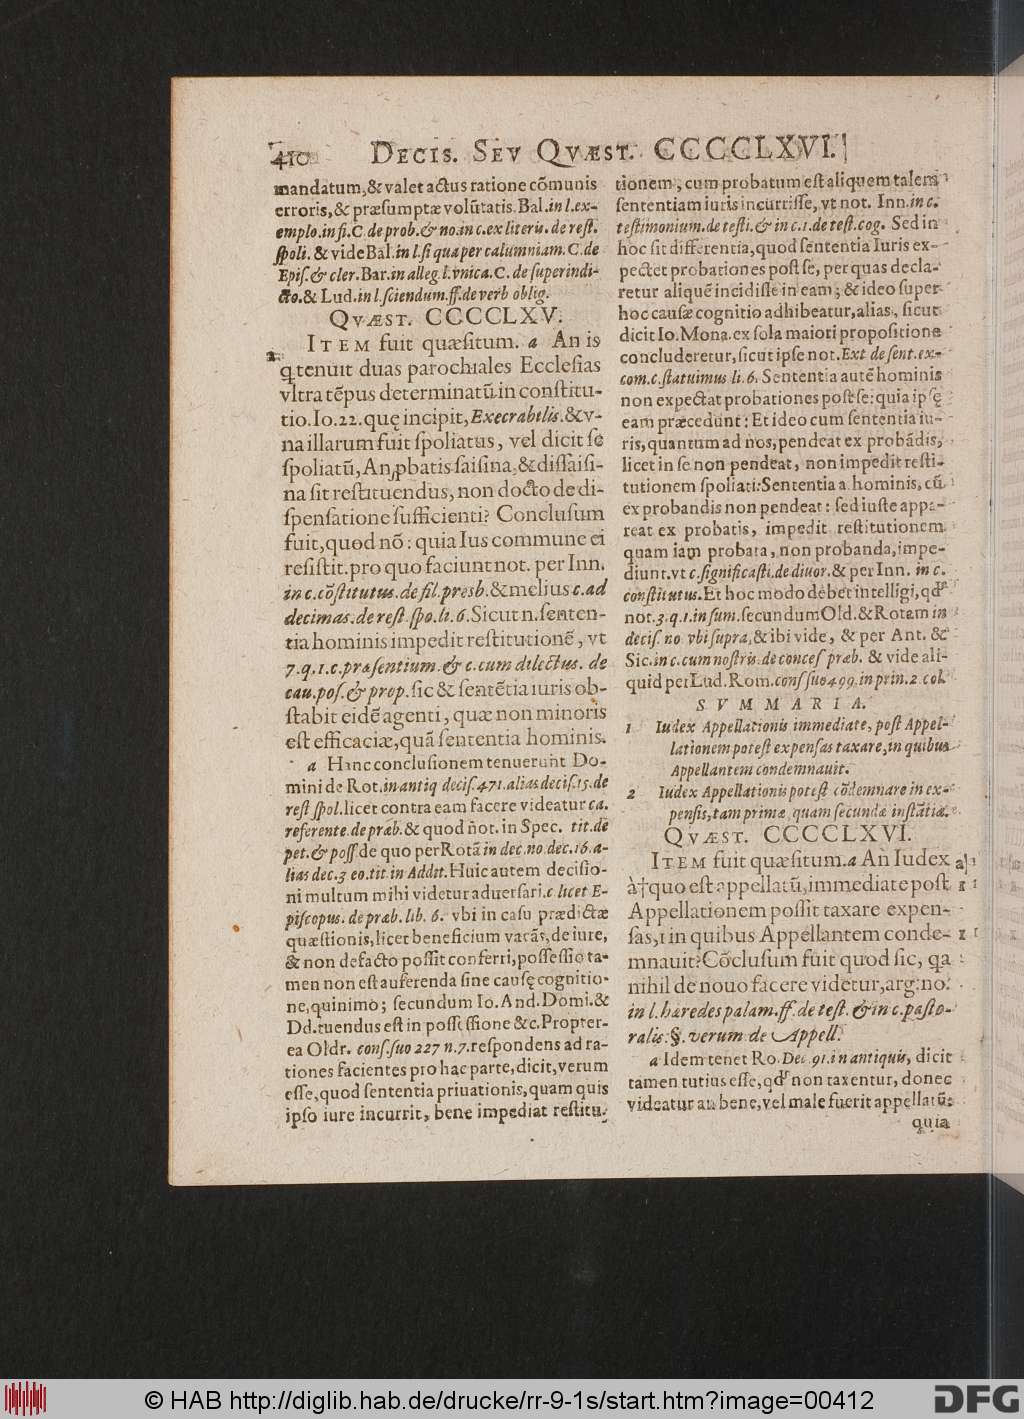 410 DECIS. SEV QVÆST. CCCCCLXVI.
mandatum,& valet actus ratione cõmunis
erroris,& præsumptæ volũtatis. Bal. in l. ex-
emplo. in fi. C. de prob. & no. in c. ex literis. de rest.
spoli. & vide Bal. in l. si qua per calumniam. C. de
Epis. & cler. Bar. in alleg. l. vnica. C. de superindi-
cto. & Lud. in l. sciendum. ff. de verb oblig.
QVÆST. CCCCCLXV.
ITEM fuit quæsitum. a An is
q tenuit duas parochiales Ecclesias
vltra tẽpus determinatũ in constitu-
tio. Io. 22. quę incipit, Execrabilis. & v-
na illarum fuit spoliatus, vel dicit se
spoliatũ, An ꝓbatis saisina, & dissaisi-
na sit restituendus, non docto de di-
spensatione sufficienti? Conclusum
fuit, quod nõ: quia Ius commune ei
resistit. pro quo faciunt not. per Inn.
in c. cõstitutus. de fil. presb. & melius c. ad
decimas. de rest. spo. li. 6. Sicut n. senten-
tia hominis impedit restitutionẽ, vt
7. q. 1. c. præsentium. & c. cum dilectus. de
cau. pos. & prop. sic & sentẽtia iuris ob-
stabit eidẽ agenti, quæ non minoris
est efficaciæ, quã sententia hominis.
a Hanc conclusionem tenuerunt Do-
mini de Rot. in antiq decis. 471. alias decis. 15. de
rest spol. licet contra eam facere videatur ca.
referente. de præb. & quod not. in Spec. tit. de
pet. & poss. de quo per Rotã in dec. no. dec. 16. a-
lias dec. 3 eo. tit. in Addit. Huic autem decisio-
ni multum mihi videtur aduersari. c licet E-
piscopus. de præb. lib. 6. vbi in casu prædictæ
quæstionis, licet beneficium vacãs, de iure,
& non de facto possit conferri, possessio ta-
men non est auferenda sine causę cognitio-
ne, quinimo; secundum Io. And. Domi. &
Dd. tuendus est in possessione &c. Propter-
ea Oldr. cons. suo 227 n. 7. respondens ad ra-
tiones facientes pro hac parte, dicit, verum
esse, quod sententia priuationis, quam quis
ipso iure incurrit, bene impediat restitu-
tionem, cum probatum est aliquem talem
sententiam iuris incurrisse, vt not. Inn. in c.
testimonium. de testi. & in c. 1. de test. cog. Sed in
hoc sit differentia, quod sententia Iuris ex-
pectet probationes post se, per quas decla-
retur aliquẽ incidisse in eam; & ideo super
hoc causæ cognitio adhibeatur, alias, sicut
dicit Io. Mona. ex sola maiori propositione
concluderetur, sicut ipse not. Ext de sent. ex-
com. c. statuimus li. 6. Sententia autẽ hominis
non expectat probationes post se: quia ipsę
eam præcedunt: Et ideo cum sententia iu-
ris, quantum ad nos, pendeat ex probãdis,
licet in se non pendeat, non impedit resti-
tutionem spoliati: Sententia a. hominis, cũ
ex probandis non pendeat: sed iuste appa-
reat ex probatis, impedit restitutionem
quam iam probata, non probanda, impe-
diunt. vt c. significasti. de diuor. & per Inn. in c.
constitutus. Et hoc modo debet intelligi, qd'
not. 3. q. 1. in sum. secundum Old. & Rotam in
decis. no vbi supra, & ibi vide, & per Ant. &
Sic. in c. cum nostris. de conces præb. & vide ali-
quid per Lud. Rom. cons suo 499. in prin. 2. col.
SVMMARIA.
1 Iudex Appellationis immediate, post Appel-
lationem potest expensas taxare, in quibus
Appellantem condemnauit.
2 Iudex Appellationis potest cõdemnare in ex-
pensis, tam primæ, quam secundæ instãtiæ.
QVÆST. CCCCCLXVI.
ITEM fuit quæsitum. a An Iudex
à † quo est appellatũ, immediate post
Appellationem possit taxare expen-
sas, † in quibus Appellantem conde-
mnauit? Cõclusum fuit quod sic, qa
nihil de nouo facere videtur, arg: no.
in l. hæredes palam. ff. de test. & in c. pasto-
ralis. §. verum de Appell.
a Idem tenet Ro. Dec. 91. in antiquis, dicit
tamen tutius esse, qd' non taxentur, donec
videatur an bene, vel male fuerit appellatũ:
quia
© HAB http://diglib.hab.de/drucke/rr-9-1s/start.htm?image=00412
DFG